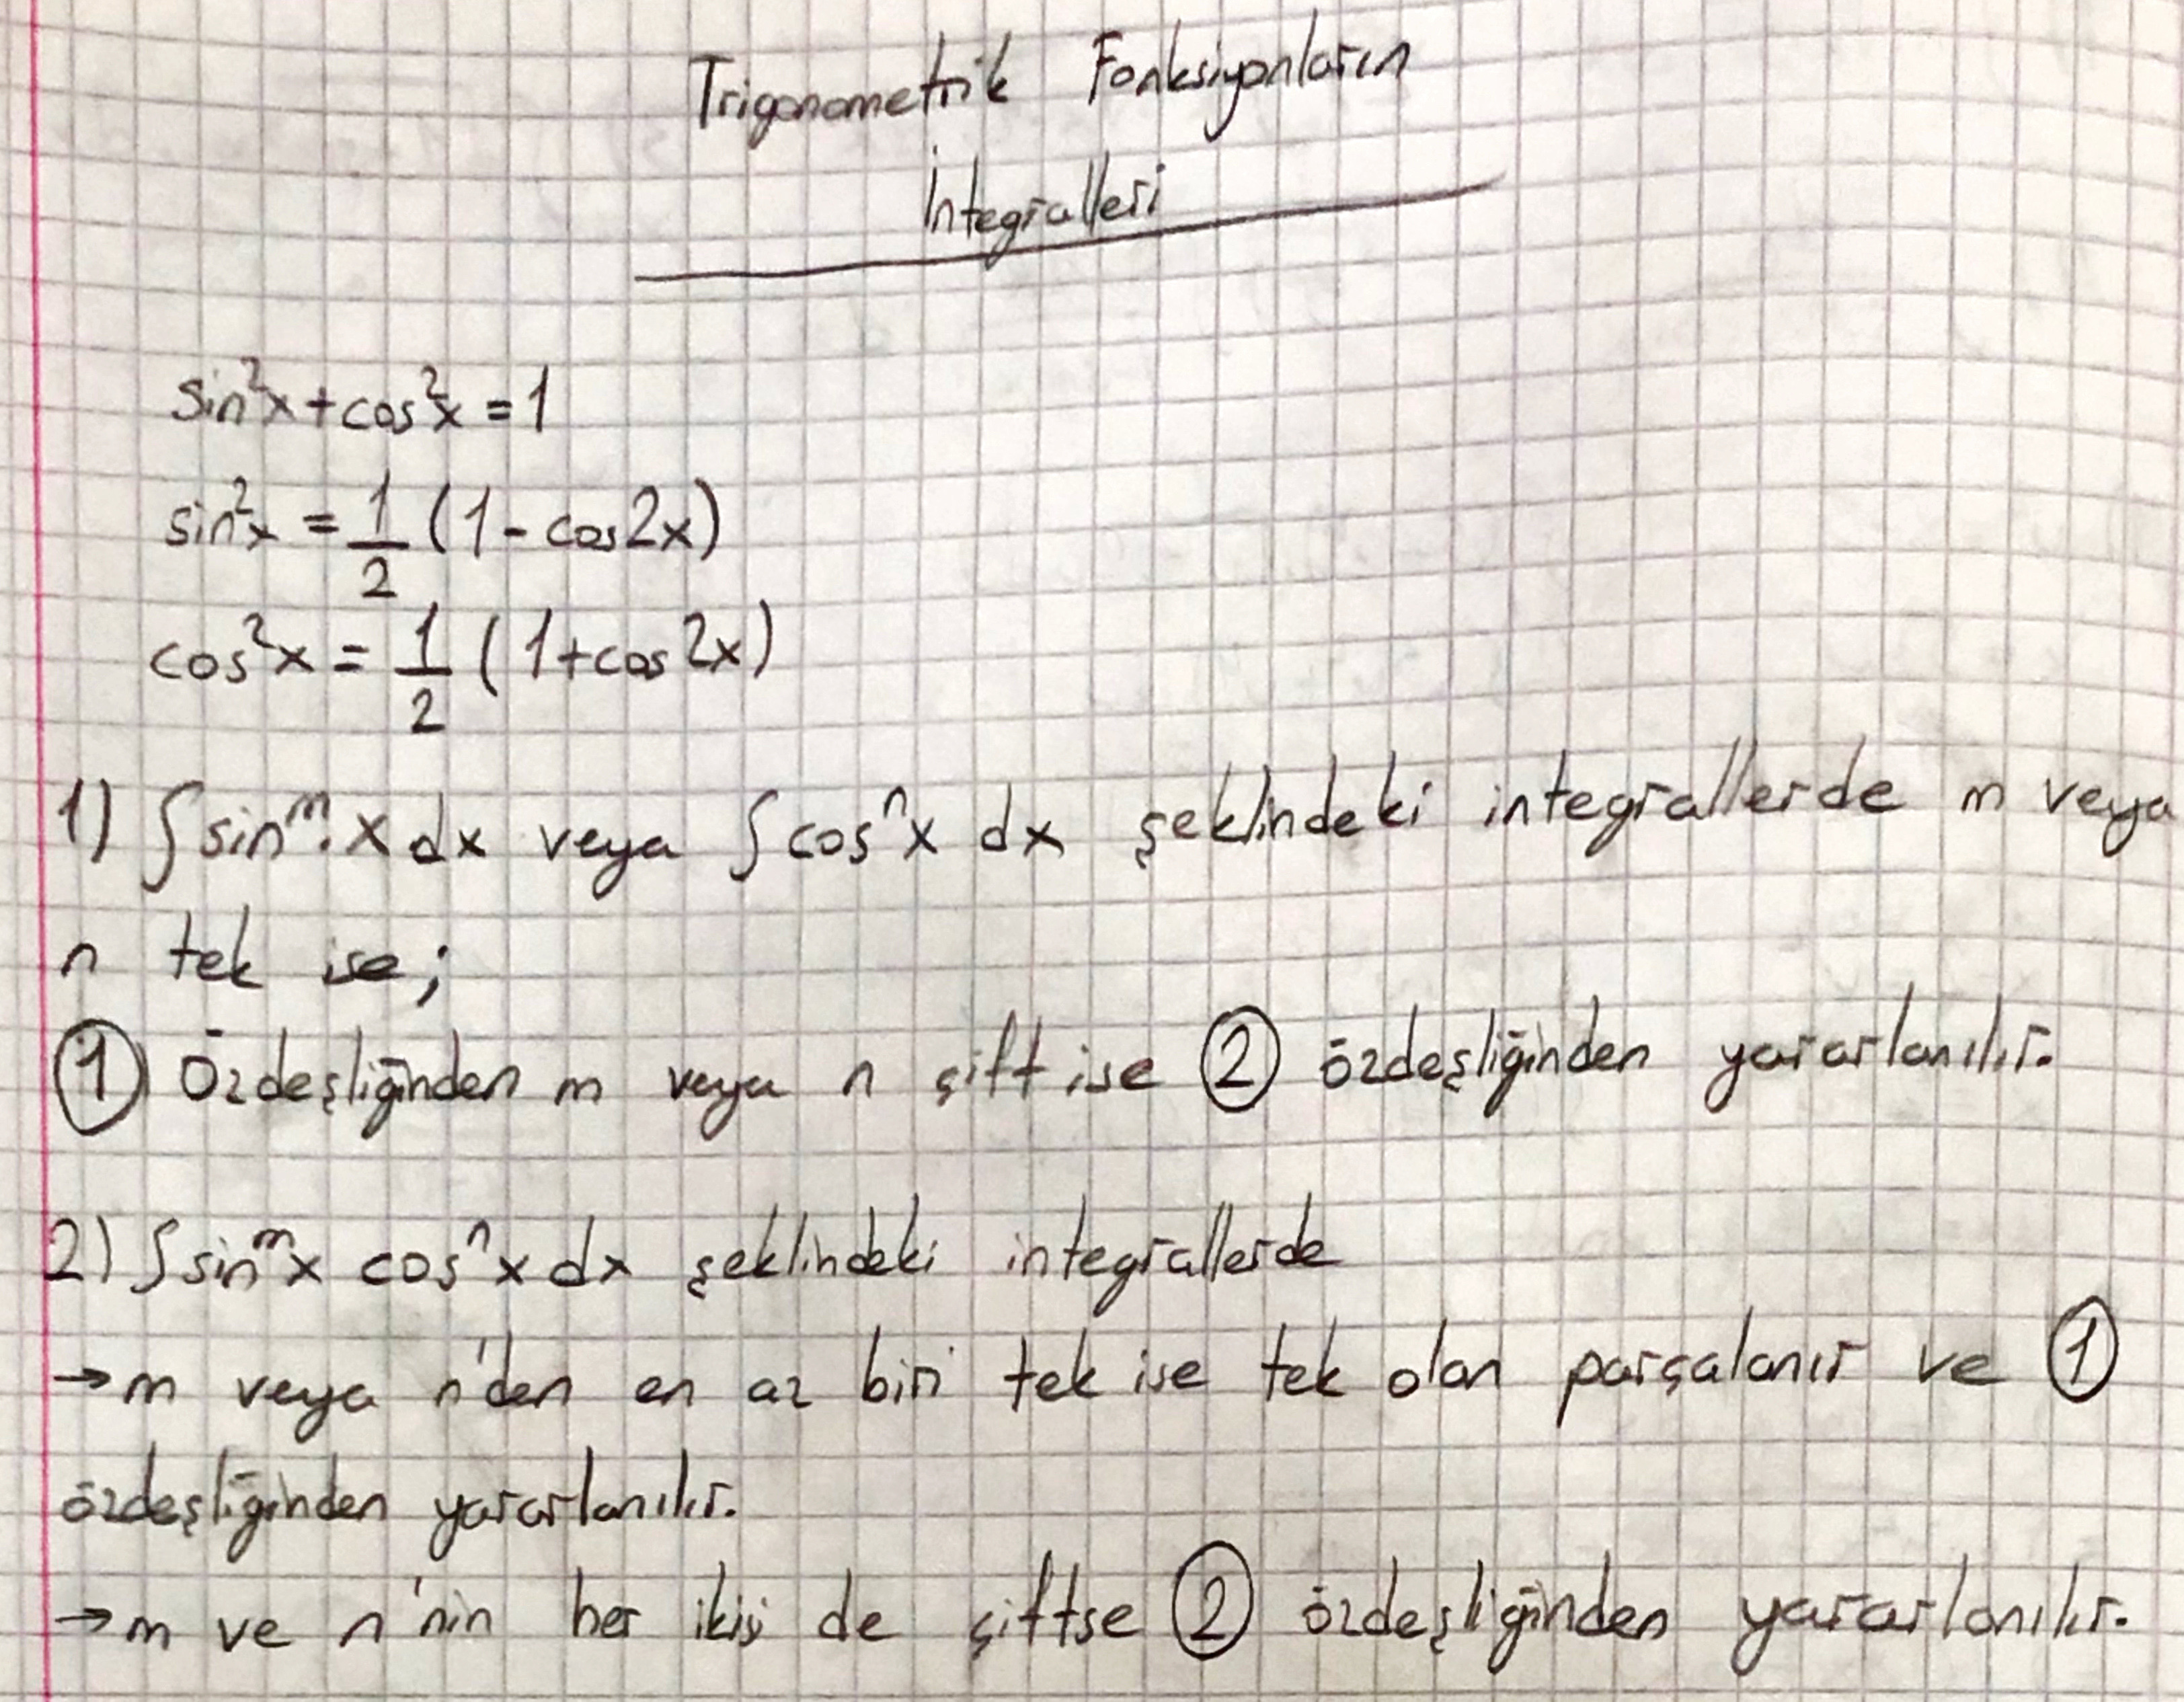 Trigonometrik Fonksiyonların
İntegralleri
sin²x+cos²x=1
sin²x = 1/2 (1-cos2x)
cos²x = 1/2 (1+cos2x)
1) ∫sinᵐ.x dx veya ∫cosⁿx dx şeklindeki integrallerde m veya
n tek ise;
① Özdeşliğinden m veya n çift ise ② özdeşliğinden yararlanılır.
2) ∫sinᵐx cosⁿx dx şeklindeki integrallerde
→m veya n'den en az biri tek ise tek olan parçalanır ve ①
özdeşliğinden yararlanılır.
→m ve n'nin her ikisi de çiftse ② özdeşliğinden yararlanılır.